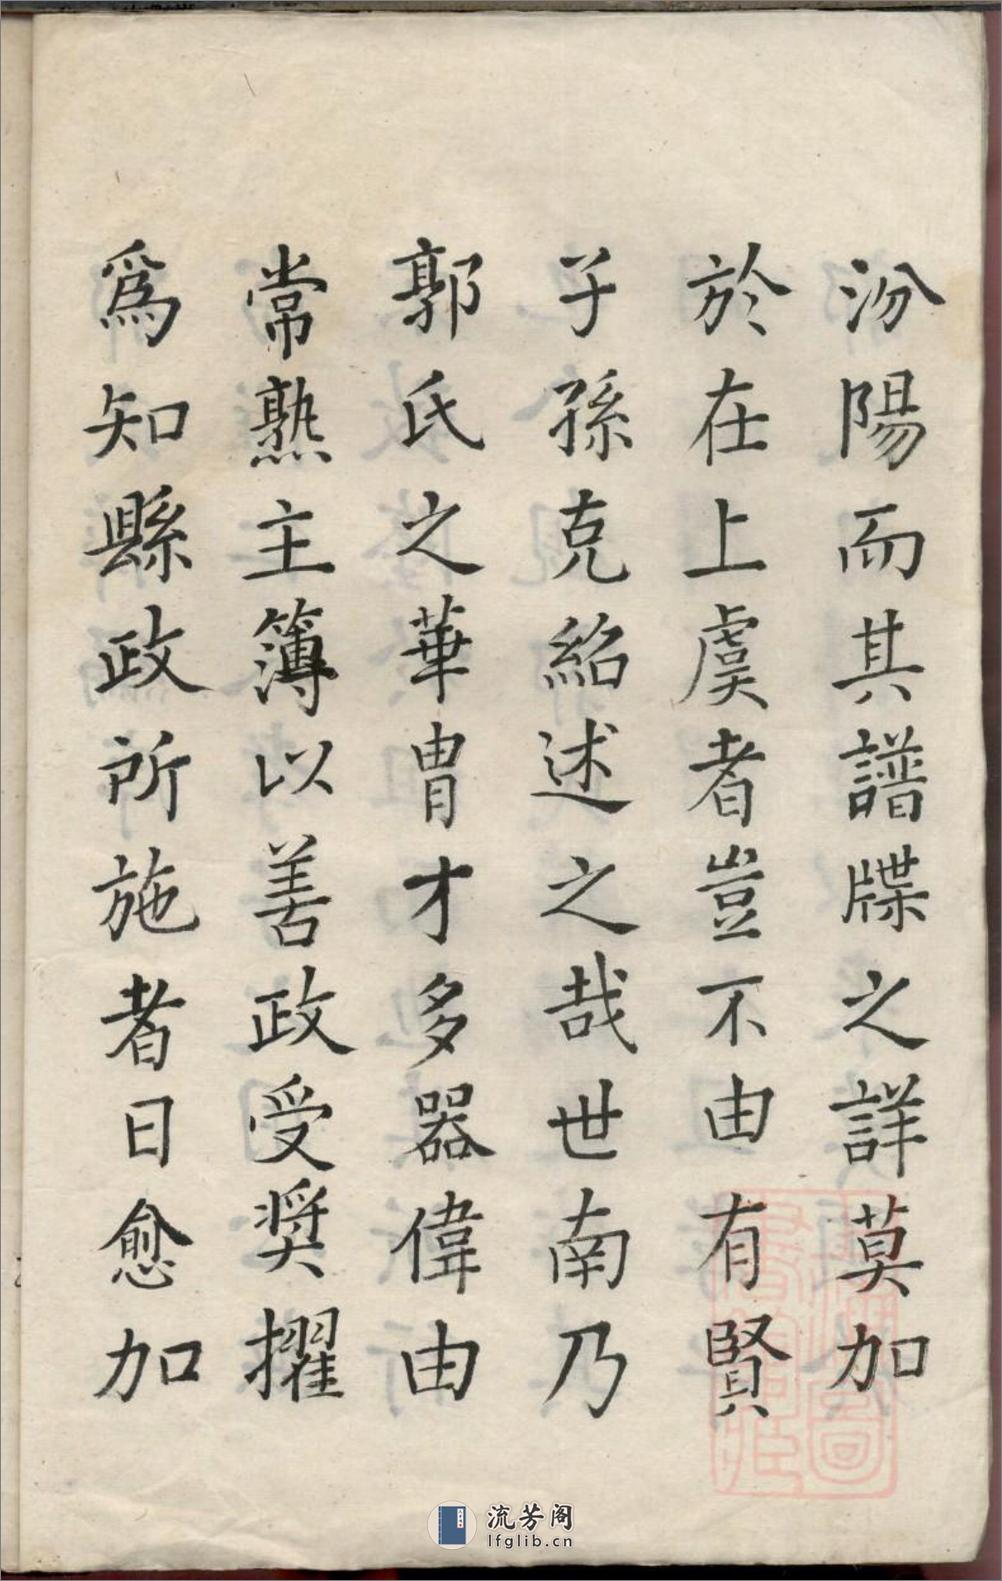 汾陽而其譜牒之詳莫加
於在上虞者豈不由有賢
子孫克紹述之哉世南乃
郭氏之華胄才多器偉由
常熟主簿以善政受奨擢
爲知縣政所施者日愈加
流芳阁
lfglib.cn